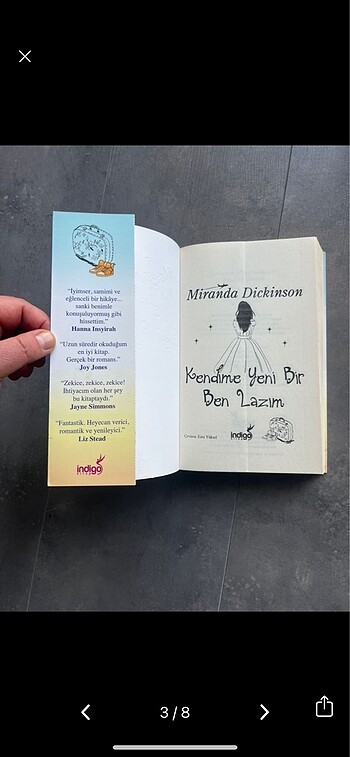 "İyimser, samimi ve
eğlenceli bir hikâye...
sanki benimle
konuşuluyormuş gibi
hissettim."
Hanna Insyirah
"Uzun süredir okuduğum
en iyi kitap.
Gerçek bir romans."
Joy Jones
"Zekice, zekice, zekice!
İhtiyacım olan her şey
bu kitaptaydı."
Jayne Simmons
"Fantastik. Heyecan verici,
romantik ve yenileyici."
Liz Stead
indigo
kitap
Miranda Dickinson
Kendime Yeni Bir
Ben Lazım
Çeviren: Esra Yüksel
indigo
kitap
3 / 8